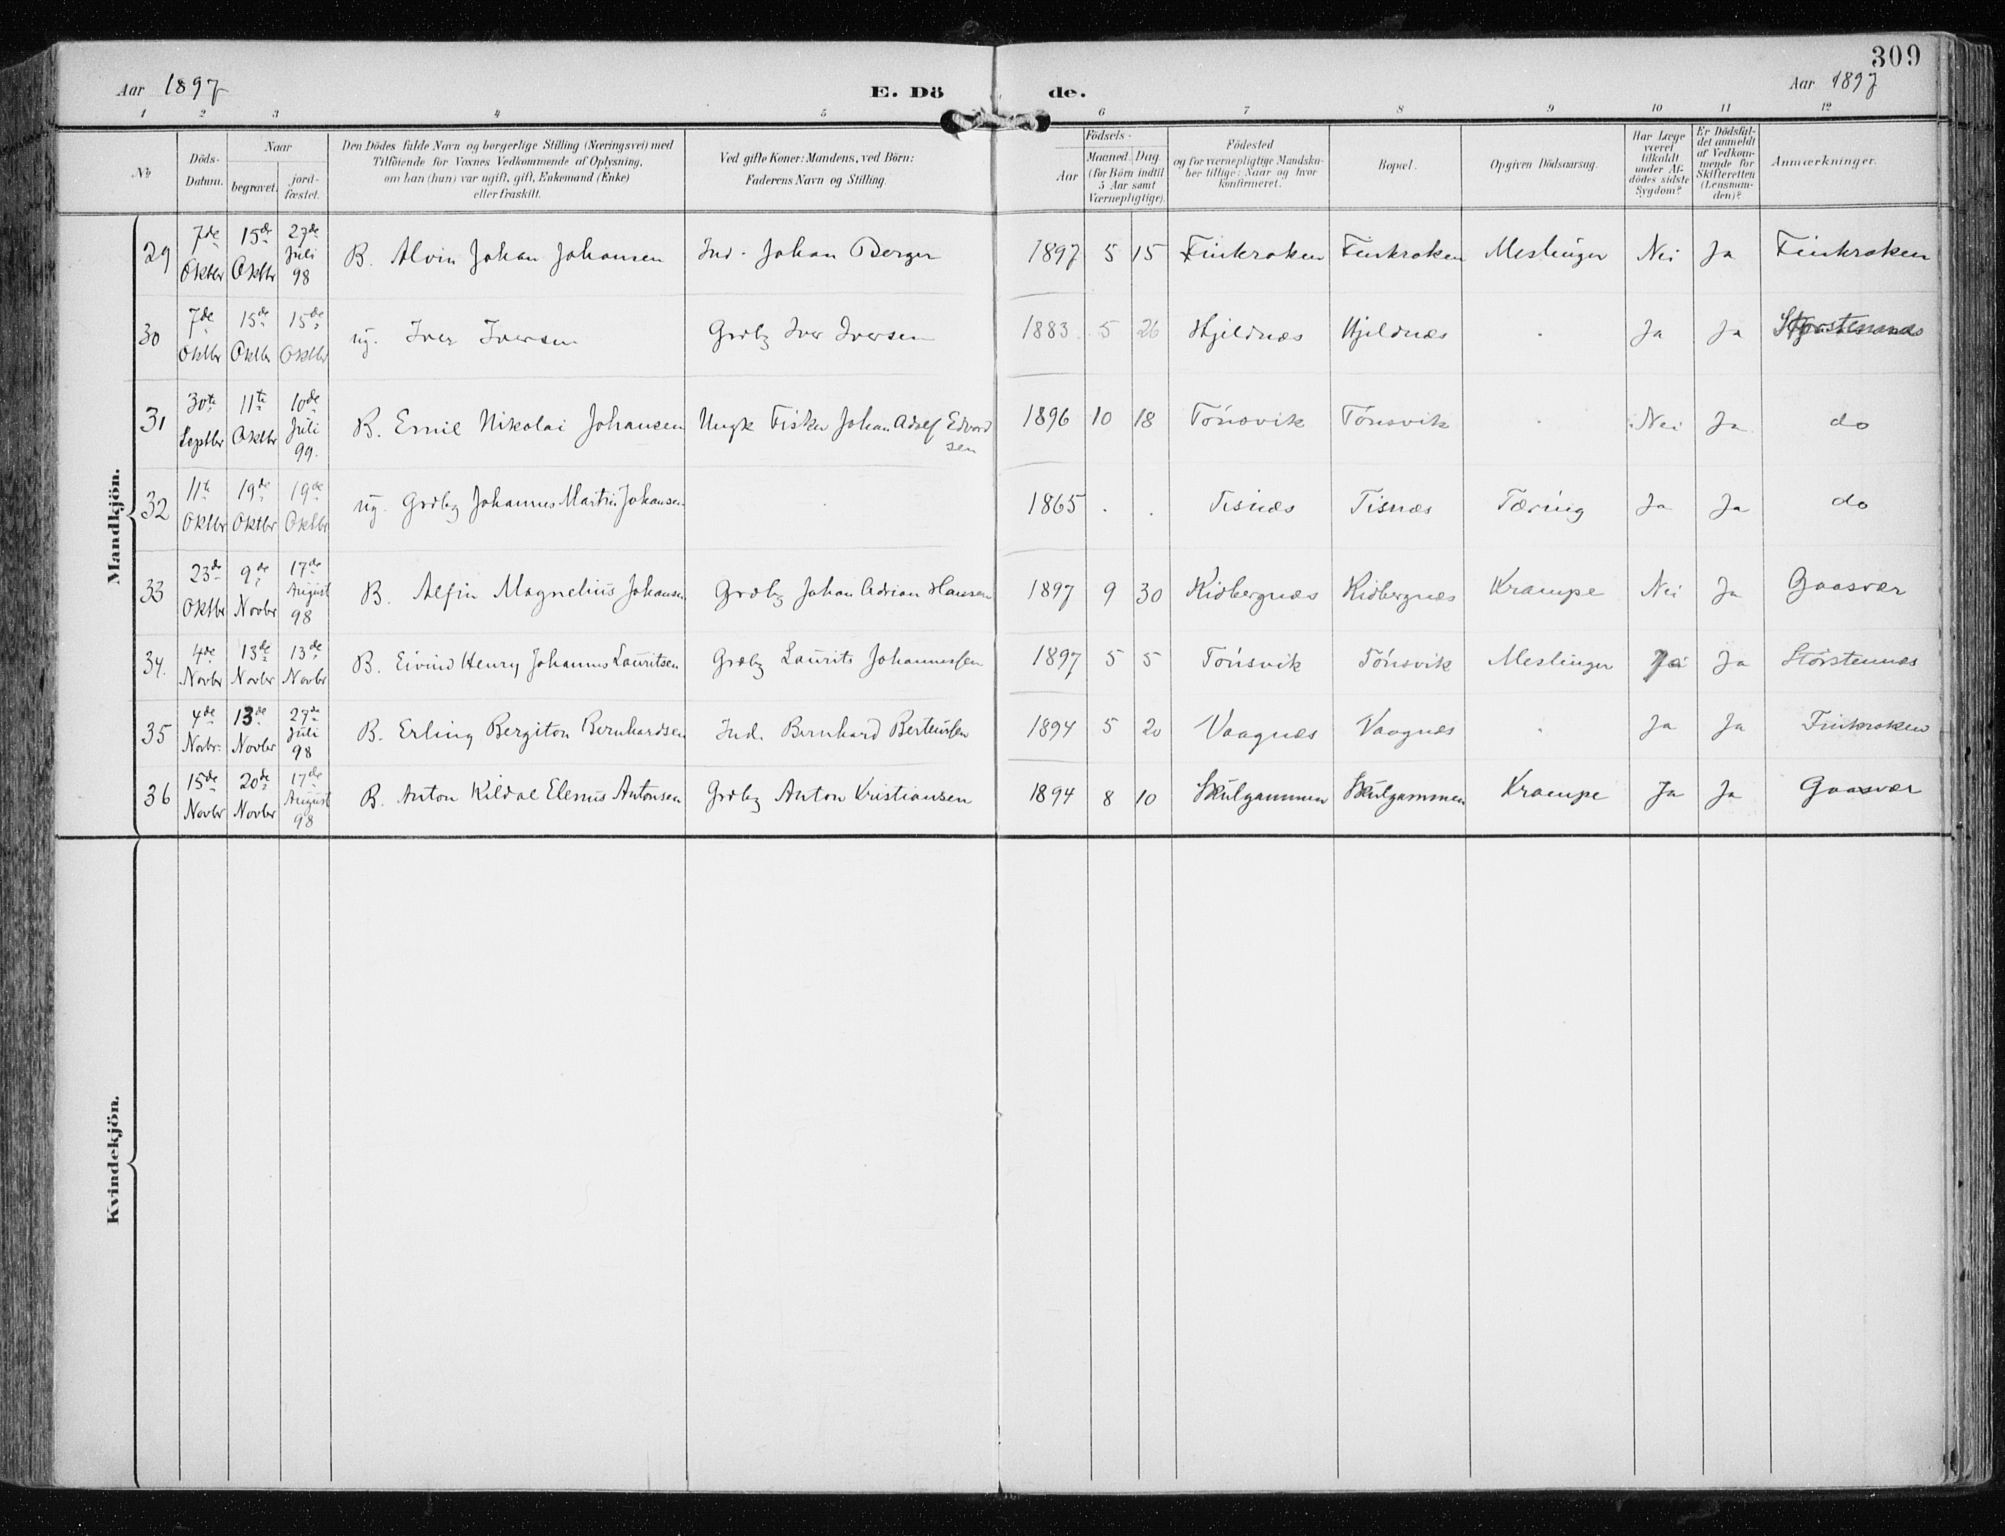 309
Aar 1897 E. Dö de. Aar 1897
1 2 3 4 5 6 7 8 9 10 11 12
№ Döds-Datum. Naar begravet. jord-fæstet. Den Dödes fulde Navn og borgerlige Stilling (Næringsvei) med Tilföiende for Voxnes Vedkommende af Oplysning, om han (hun) var ugift, gift, Enkemand (Enke) eller fraskilt. Ved gifte Koner: Mandens, ved Börn: Faderens Navn og Stilling. Födsels- Aar Maaned. Dag (for Börn indtil 5 Aar samt Værnepligtige). Födested og for værnepligtige Mandskaber tillige: Naar og hvor konfirmeret. Bopæl. Opgiven Dödsaarsag. Har Læge været tilkaldt under Afdödes sidste Sygdom? Er Dödsfaldet anmeldt af Vedkommende for Skifteretten (Lensmanden)? Anmærkninger.
Mandkjön.
29 7de Oktbr 15de Oktbr 27de Juli 98 B. Alvin Johan Johansen Ind. Johan Berger 1897 5 15 Finkroken Finkroken Meslinger Nei Ja Finkroken
30 7de Oktbr 15de Oktbr 15de Oktbr ug. Iver Iversen Grdbr Iver Iversen 1883 5 26 Hjeldnæs Hjeldnæs . Ja Ja Storstennæs
31 30te Septbr 11te Oktbr 10de Juli 99. B. Emil Nikolai Johansen Ungk Fisker Johan Adolf Edvardsen 1896 10 18 Tønsvik Tønsvik . Nei Ja do
32 11te Oktbr 19de Oktbr 19de Oktbr ug. Grdbr Johannes Martin Johansen . 1865 . . Tisnæs Tisnæs Tæring Ja Ja do
33 23de Oktbr 9de Novbr 17de August 98 B. Alfin Magnelius Johansen Grdbr Johan Adrian Hansen 1897 9 30 Kidbergnæs Kidbergnæs Krampe Nei Ja Gaasvær
34. 4de Novbr 13de Novbr 13de Novbr B. Eivind Henry Johannes Lauritsen Grdbr Laurits Johannessen 1897 5 5 Tønsvik Tønsvik Meslinger Ja Ja Storstennæs
35 4de Novbr. 13de Novbr 27de Juli 98 B. Erling Bergiton Bernhardsen Ind. Bernhard Berteussen 1894 5 20 Vaagnæs Vaagnæs . Ja Ja Finkroken
36 15de Novbr 20de Novbr 17de August 98 B. Anton Kildal Elenus Antonsen Grdbr Anton Kristiansen 1894 8 10 Skulgammen Skulgammen Krampe Ja Ja Gaasvær
Kvindekjön.